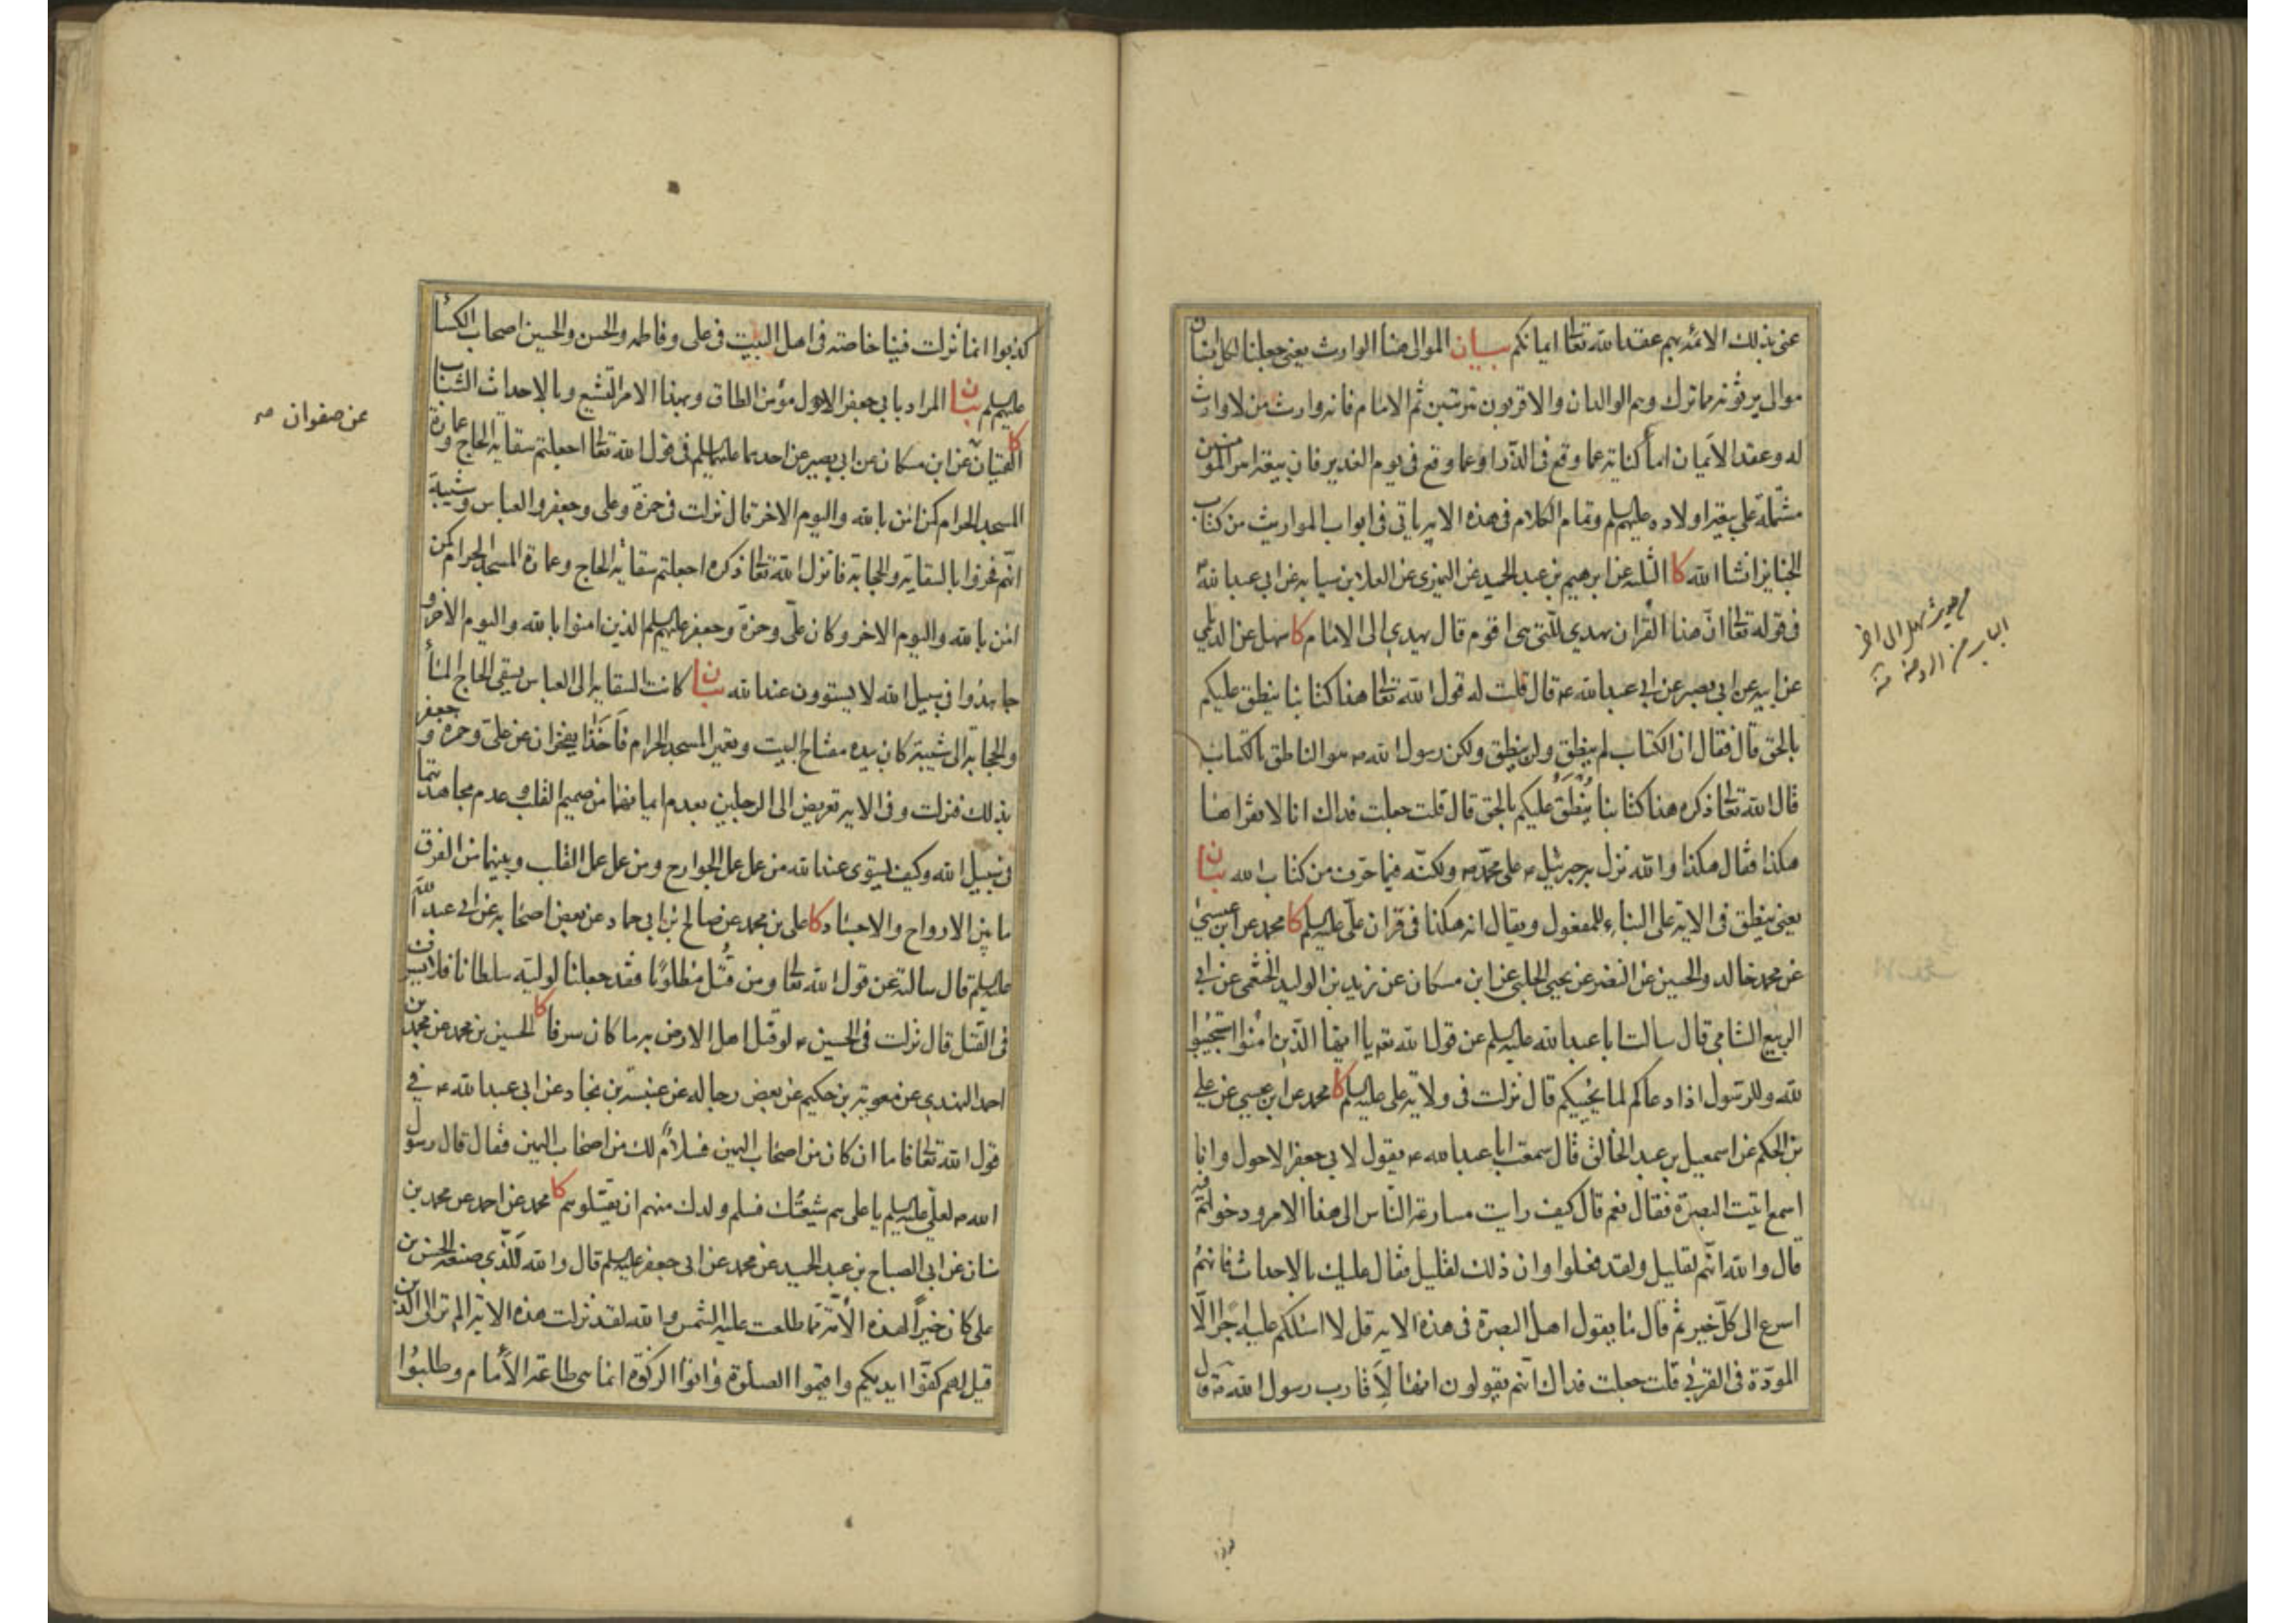 عنى بذلك الائمة بهم عقد الله تعالى ايمانكم بيان الموالى هنا الوارث يعنى جعلنا لكل انسان
موالى يرثونه مما ترك وهم الوالدان والاقربون مترتبين ثم الامام فانه وارث من لا وارث
له وعقد الايمان اما كناية عما وقع فى الذر او عما وقع فى يوم الغدير فان بيعة امير المؤمنين
مشتملة على بيعة اولاده عليهم السلم وتمام الكلام فى هذه الاية ياتى فى ابواب المواريث من كتاب
الجنايز انشاء الله كا الثلثة عن ابرهيم بن عبد الحميد عن النميرى عن العلا بن سيابه عن ابى عبد الله
فى قوله تعالى ان هذا القران يهدي للتى هى اقوم قال يهدي الى الامام كا سهل عن الديلمي
عن ابيه عن ابى بصير عن ابى عبد الله ع قال قلت له قول الله تعالى هذا كتابنا ينطق عليكم
بالحق قال فقال ان الكتاب لم ينطق ولن ينطق ولكن رسول الله ص هو الناطق بالكتاب
قال الله تعالى ذكره هذا كتابنا يُنْطَقُ عليكم بالحق قال قلت جعلت فداك انا لا نقراها
هكذا فقال هكذا والله نزل به جبرئيل ع على محمد ص ولكنه فيما حرف من كتاب الله بيان
يعنى ينطق فى الاية على البناء للمفعول ويقال انه هكذا فى قران على عليه السلم كا محمد عن ابن عيسى
عن محمد خالد والحسين عن النضر عن يحيى الحلبى عن ابن مسكان عن زيد بن الوليد الخثعمى عن ابى
الربيع الشامى قال سالت ابا عبد الله عليه السلم عن قول الله تع يا ايها الذين امنوا استجيبوا
لله وللرسول اذا دعاكم لما يحييكم قال نزلت فى ولاية على عليه السلم كا محمد عن ابن عيسى عن على
بن الحكم عن اسمعيل بن عبد الخالق قال سمعت ابا عبد الله ع يقول لابى جعفر الاحول وانا
اسمع اتيت البصرة فقال نعم قال كيف رايت مسارعة الناس الى هذا الامر ودخولهم فيه
قال والله انهم لقليل ولقد فعلوا وان ذلك لقليل فقال عليك بالاحداث فانهم
اسرع الى كل خير ثم قال ما يقول اهل البصرة فى هذه الاية قل لا اسئلكم عليه اجرا الا
المودة فى القربى قلت جعلت فداك انهم يقولون انها لاقارب رسول الله ص قال
كذبوا انما نزلت فينا خاصة فى اهل البيت فى على وفاطمه والحسن والحسين اصحاب الكساء
عليهم السلم بيان المراد بابى جعفر الاحول مؤمن الطاق وبهذا الامر التشيع وبالاحداث الشباب
كا القميان عن ابن مسكان عن ابى بصير عن احدهما عليهما السلم فى قول الله تعالى اجعلتم سقاية الحاج وعمارة
المسجد الحرام كمن امن بالله واليوم الاخر قال نزلت فى حمزة وعلى وجعفر والعباس وشيبة
انهم فخروا بالسقاية والحجابة فانزل الله تعالى ذكره اجعلتم سقاية الحاج وعمارة المسجد الحرام كمن
امن بالله واليوم الاخر وكان على وحمزة وجعفر عليهم السلم الذين امنوا بالله واليوم الاخر و
جاهدوا فى سبيل الله لا يستوون عند الله بيان كانت السقاية الى العباس يسقى الحاج الماء
والحجابة الى شيبة كان بيده مفتاح البيت وتعمير المسجد الحرام فاخذا يفخران عن على وحمزه وجعفر
بذلك فنزلت وفى الاية تعريض الى الرجلين بعدم ايمانهما من صميم القلب وعدم مجاهدتهما
فى سبيل الله وكيف يستوى عند الله من عمل عمل الجوارح ومن عمل عمل القلب وبينهما من الفرق
ما بين الارواح والاجساد كا على بن محمد عن صالح بن ابى حماد عن بعض اصحابه عن ابى عبد الله
عليه السلم قال سالته عن قول الله تعالى ومن قُتل مظلوما فقد جعلنا لوليه سلطانا فلا يسرف
فى القتل قال نزلت فى الحسين ع لو قتل اهل الارض به ما كان سرفا كا الحسين بن محمد عن محمد بن
احمد النهدى عن معوية بن حكيم عن بعض رجاله عن عنبسة بن بجاد عن ابى عبد الله ع فى
قول الله تعالى فاما ان كان من اصحاب اليمين فسلامٌ لك من اصحاب اليمين فقال قال رسول
الله ص لعلى عليه السلم يا على هم شيعتك فسلم ولدك منهم ان يقتلوهم كا محمد عن احمد عن محمد بن
سنان عن ابى الصباح بن عبد الحميد عن محمد عن ابى جعفر عليه السلم قال والله للذى صنعه الحسن بن
على كان خيرًا لهذه الأمّة مما طلعت عليه الشمس والله لقد نزلت هذه الاية الم تر الى الذين
قيل لهم كفوا ايديكم واقيموا الصلوة واتوا الزكوة انما هى طاعة الامام وطلبوا
عن صفوان صح